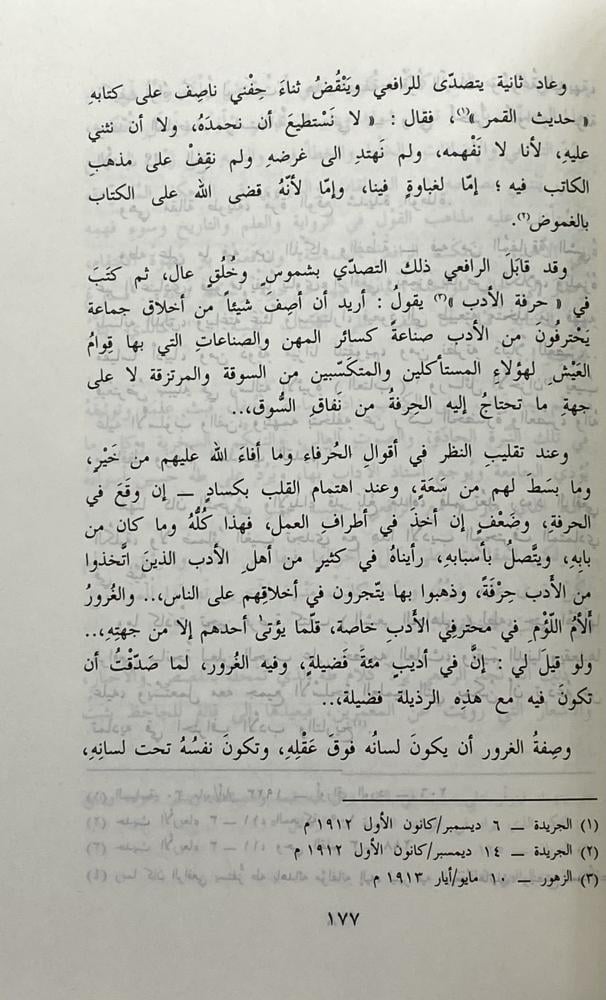 وعاد ثانية يتصدّى للرافعي ويَنْقُضُ ثناءَ حِفْني ناصِف على كتابهِ
« حديث القمر »(١)، فقال : « لا نَسْتطيعَ أن نحمدَهُ، ولا أن نثني
عليهِ، لأنا لا نَفْهمه، ولم نَهتدِ الى غرضهِ ولم نقِفْ على مذهبِ
الكاتب فيه ؛ إمّا لغباوةٍ فينا، وإمّا لأنّهُ قضى الله على الكتاب
بالغموض(٢).
وقد قابَلَ الرافعي ذلك التصدّي بشموسٍ وخُلُقٍ عال، ثم كتَبَ
في « حرفة الأدب »(٣) يقولُ : أريد أن أصِفَ شيئاً من أخلاق جماعة
يَحْترفُونَ من الأدب صناعةً كسائر المهن والصناعاتِ التي بها قِوامُ
العَيْشِ لهؤلاءِ المستأكلين والمتكَسّبين من السوقة والمرتزقة لا على
جهةِ ما تحتاجُ إليه الحِرفةُ من نَفاقِ السُّوق،..
وعند تقليبِ النظر في أقوالِ الحُرفاء وما أفاءَ الله عليهم من خَيْرٍ،
وما بسَطَ لهم من سَعَةٍ، وعند اهتمام القلب بكسادٍ ــ إن وقَعَ في
الحرفةِ، وضَعْفٍ إن أخذَ في أطرافِ العمل، فهذا كُلُّهُ وما كان من
بابِهِ، ويتَّصلُ بأسبابهِ، رأيناهُ في كثيرٍ من أهلِ الأدب الذينَ اتّخذوا
من الأَدب حِرْفَةً، وذهبوا بها يتّجرون في أخلاقِهم على الناس،.. والغُرورُ
أَلْأَمُ اللّؤْمِ في محترفي الأَدبِ خاصة، قلّما يؤتىٰ أحدهم إلا من جهتِهِ،..
ولو قيلَ لي : إنَّ في أديبٍ مئةَ فَضيلةٍ، وفيه الغُرور، لما صَدّقْتُ أن
تكونَ فيه مع هذِه الرذيلة فضيلة،..
وصِفةُ الغرور أن يكونَ لسانُه فوقَ عَقْلِهِ، وتكونَ نفسُهُ تحت لسانِهِ،
(١) الجريدة ــ ٦ ديسمبر/كانون الأول ١٩١٢ م
(٢) الجريدة ــ ١٤ ديمسبر/كانون الأول ١٩١٢ م
(٣) الزهور ــ ١٠ مايو/أيار ١٩١٣ م
١٧٧